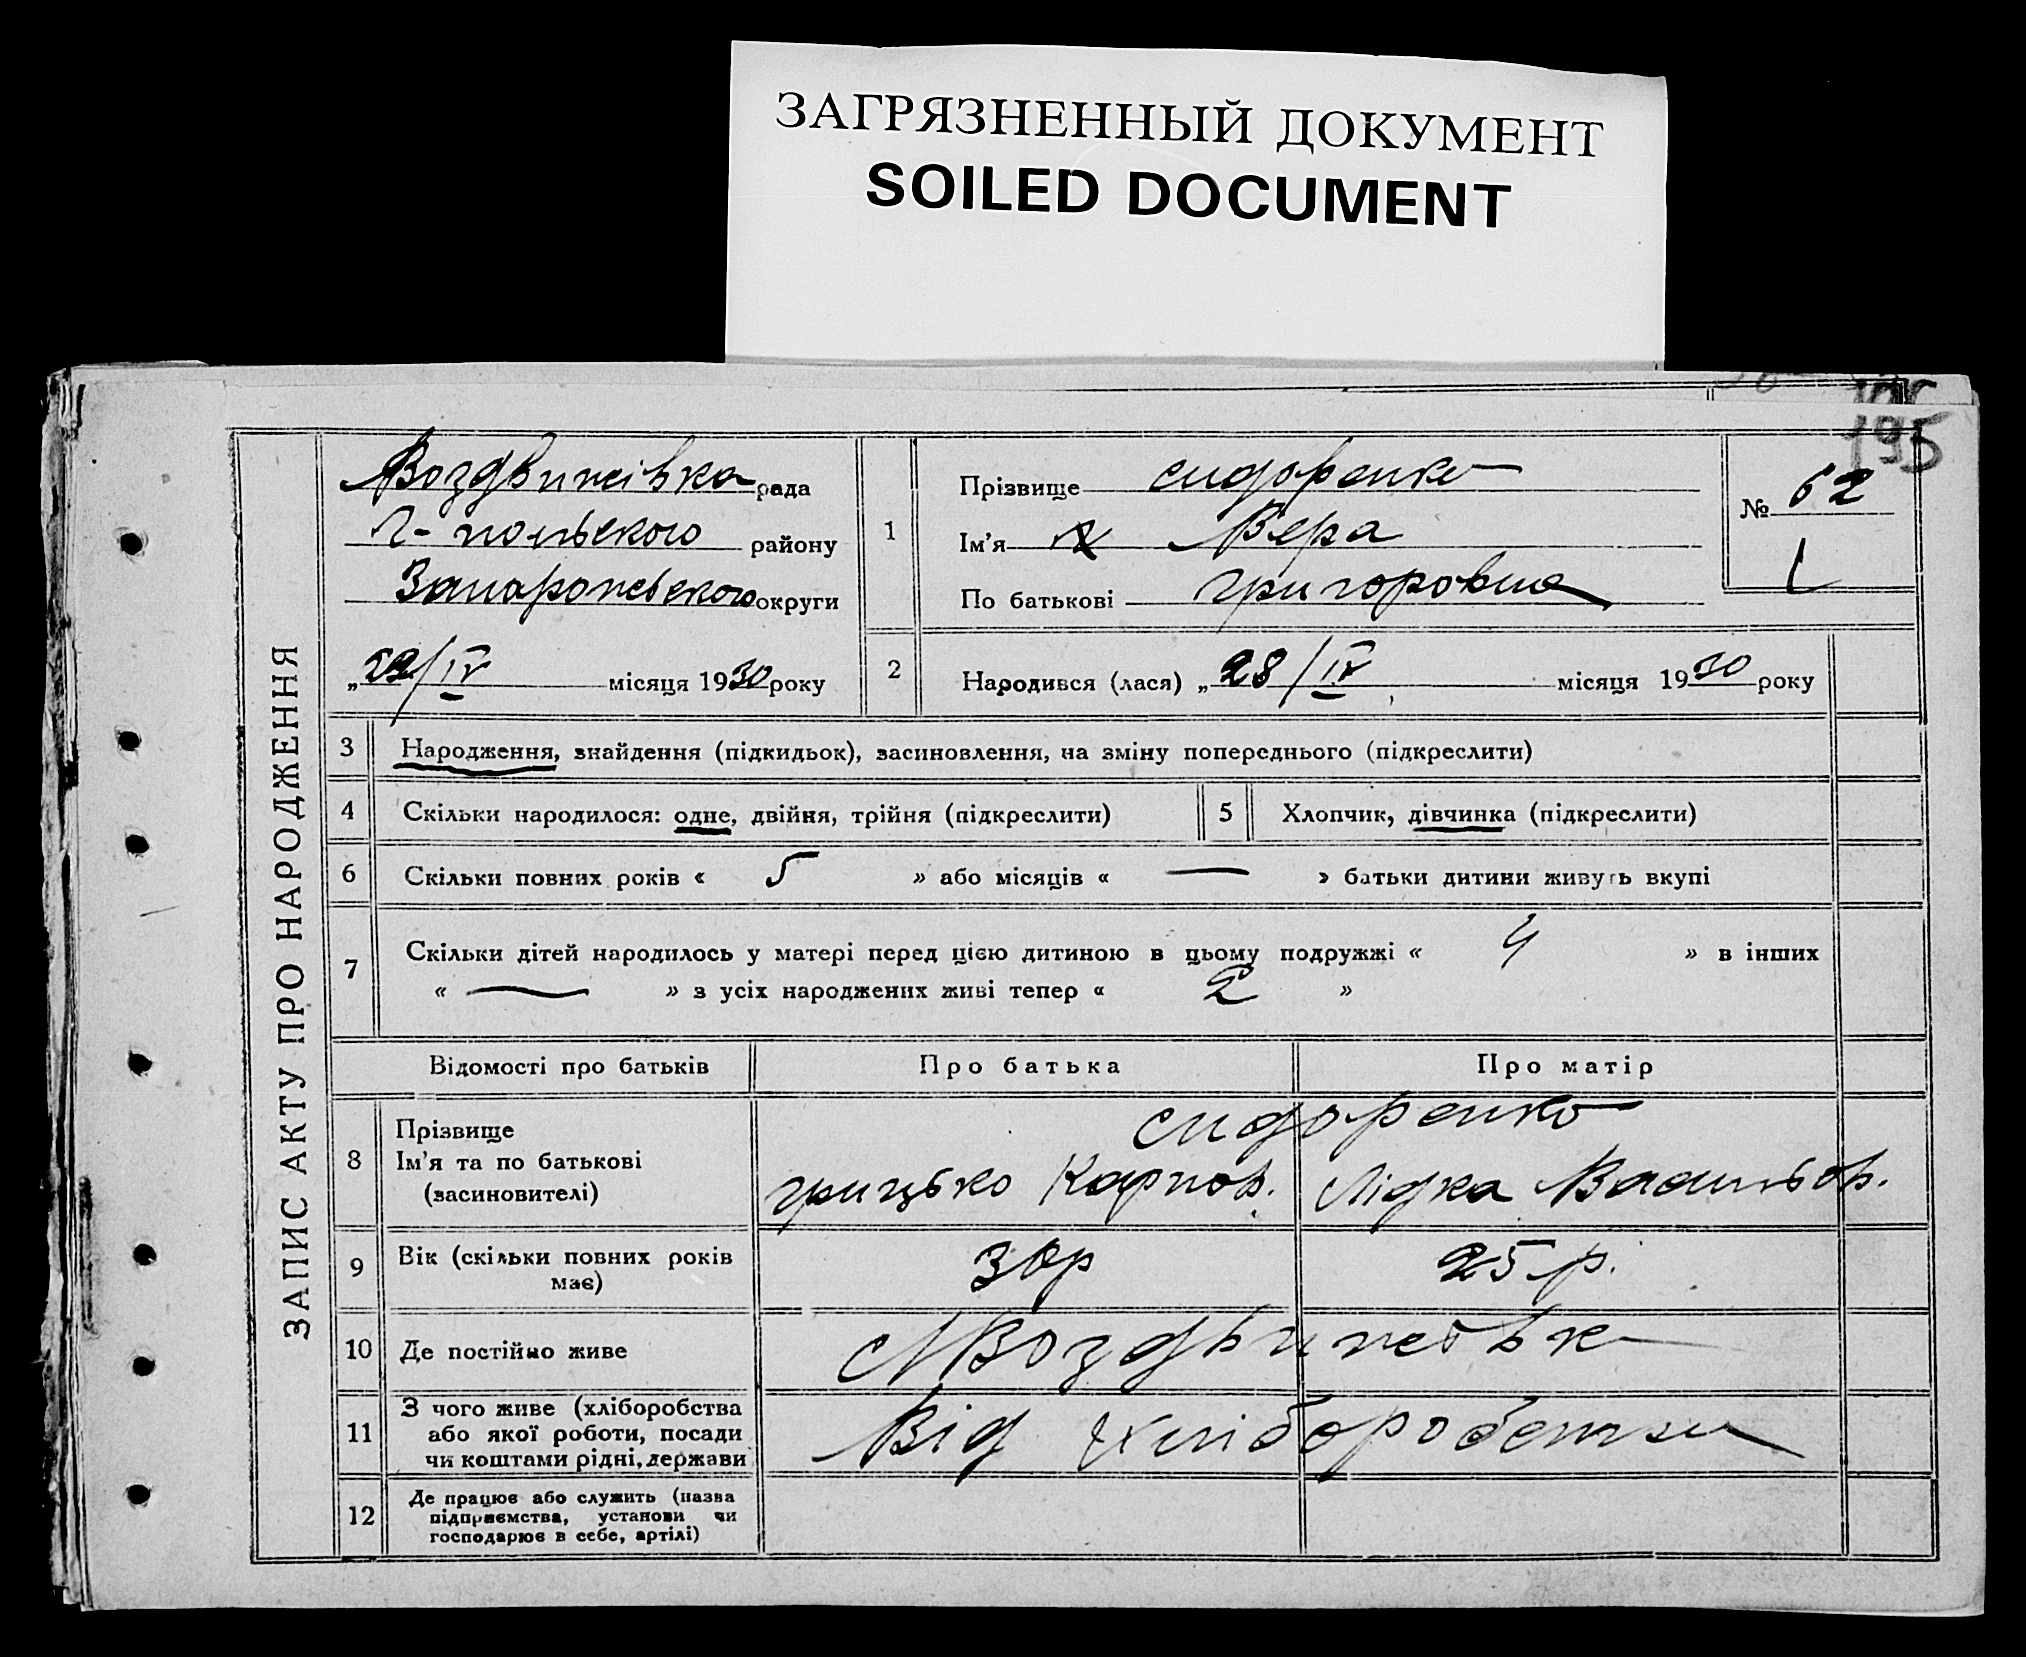 ЗАГРЯЗНЕННЫЙ ДОКУМЕНТ
SOILED DOCUMENT
195
ЗАПИС АКТУ ПРО НАРОДЖЕННЯ
Воздвижівка рада
Г-польського району
Запорожського округи
„ 29/IV місяця 1930 року
1
Прізвище Сидоренко
Ім'я Вера
По батькові Григоровна
№ 62
2
Народився (лася) „ 28/IV місяця 1930 року
3 Народження, знайдення (підкидьок), засиновлення, на зміну попереднього (підкреслити)
4 Скільки народилося: одне, двійня, трійня (підкреслити)
5 Хлопчик, дівчинка (підкреслити)
6 Скільки повних років « 5 » або місяців « — » батьки дитини живуть вкупі
7 Скільки дітей народилось у матері перед цією дитиною в цьому подружжі « 4 » в інших
« — » з усіх народжених живі тепер « 2 »
Відомості про батьків Про батька Про матір
8 Прізвище
Ім'я та по батькові
(засиновителі)
Сидоренко
Грицько Карпов. Лідка Васильов.
9 Вік (скільки повних років
має)
30р 25 р.
10 Де постійно живе
с Воздвижівка
11 З чого живе (хліборобства
або якої роботи, посади
чи коштами рідні, держави
Від хліборобства
12 Де працює або служить (назва
підприємства, установи чи
господарює в себе, артілі)